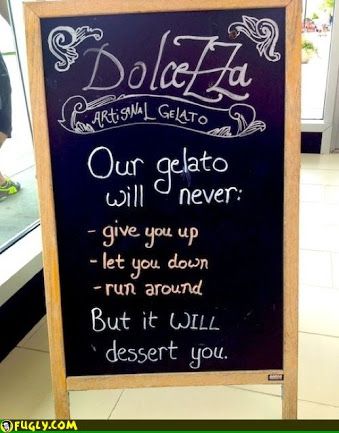 DolceZZa
ARTiSANAL GELATO
Our gelato
will never:
- give you up
- let you down
- run around
But it WILL
dessert you.
FUGLY.COM